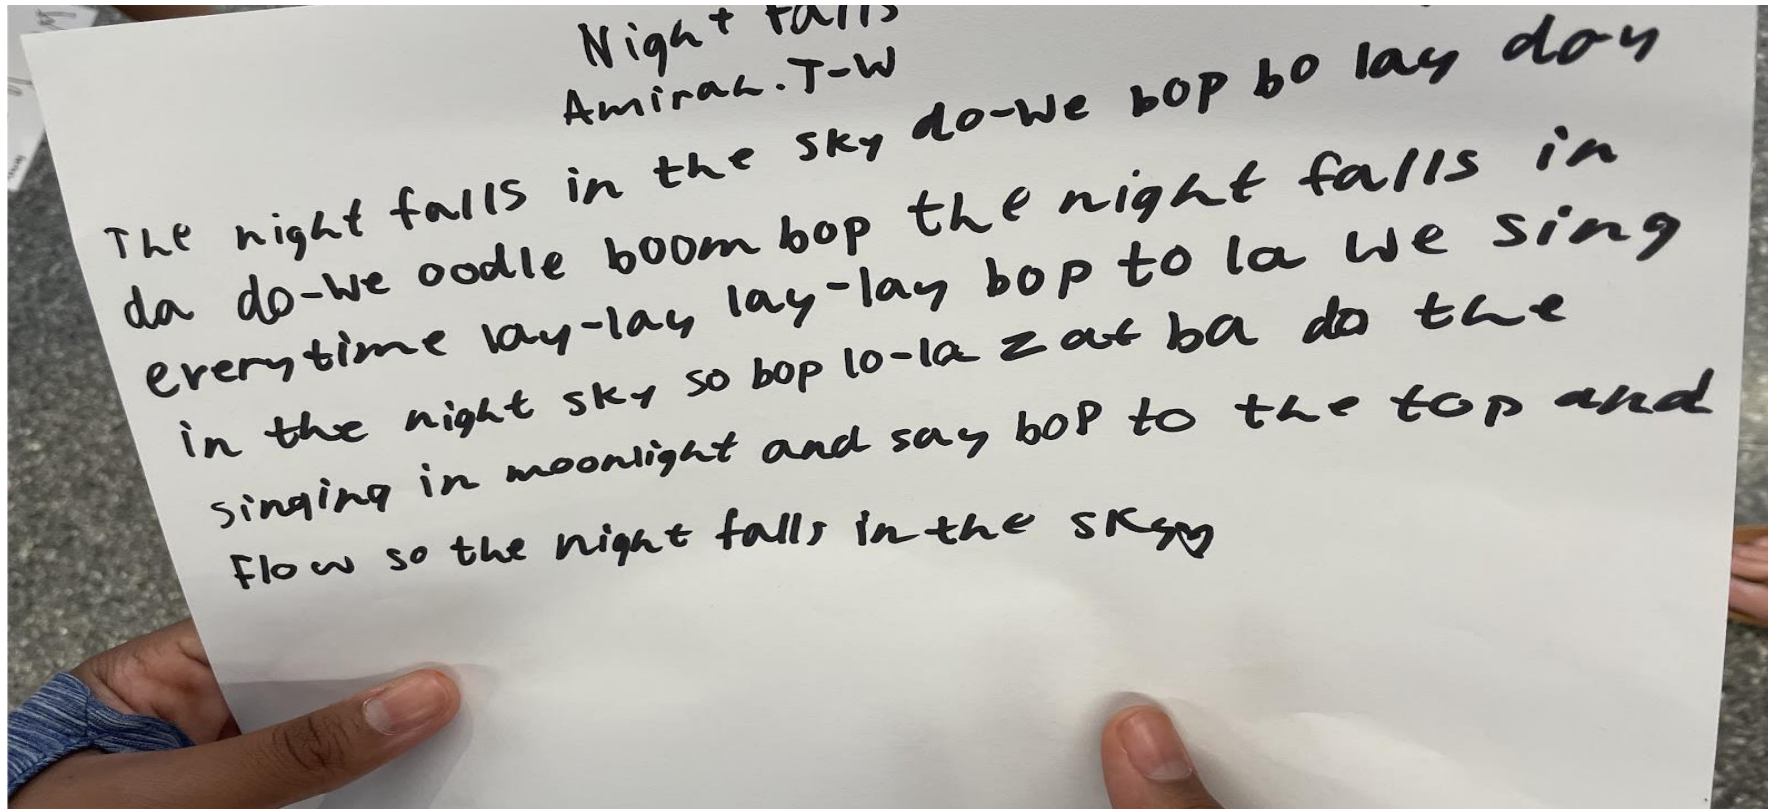 Night Falls
Amirah.T-W
The night falls in the sky do-we bop bo lay day
da do-we oodle boom bop the night falls in
everytime lay-lay lay-lay bop to la we sing
in the night sky so bop lo-la zat ba do the
singing in moonlight and say bop to the top and
Flow so the night falls in the sky